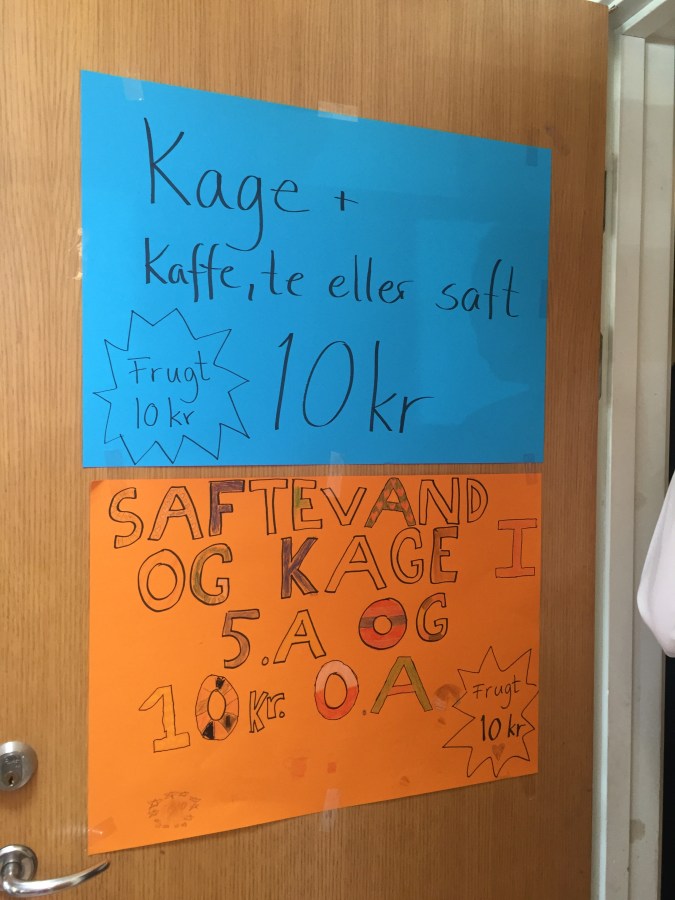 Kage +
Kaffe, te eller saft
10 kr
Frugt
10 kr
SAFTEVAND
OG KAGE I
5.A OG
10 kr. 0.A
Frugt
10 kr